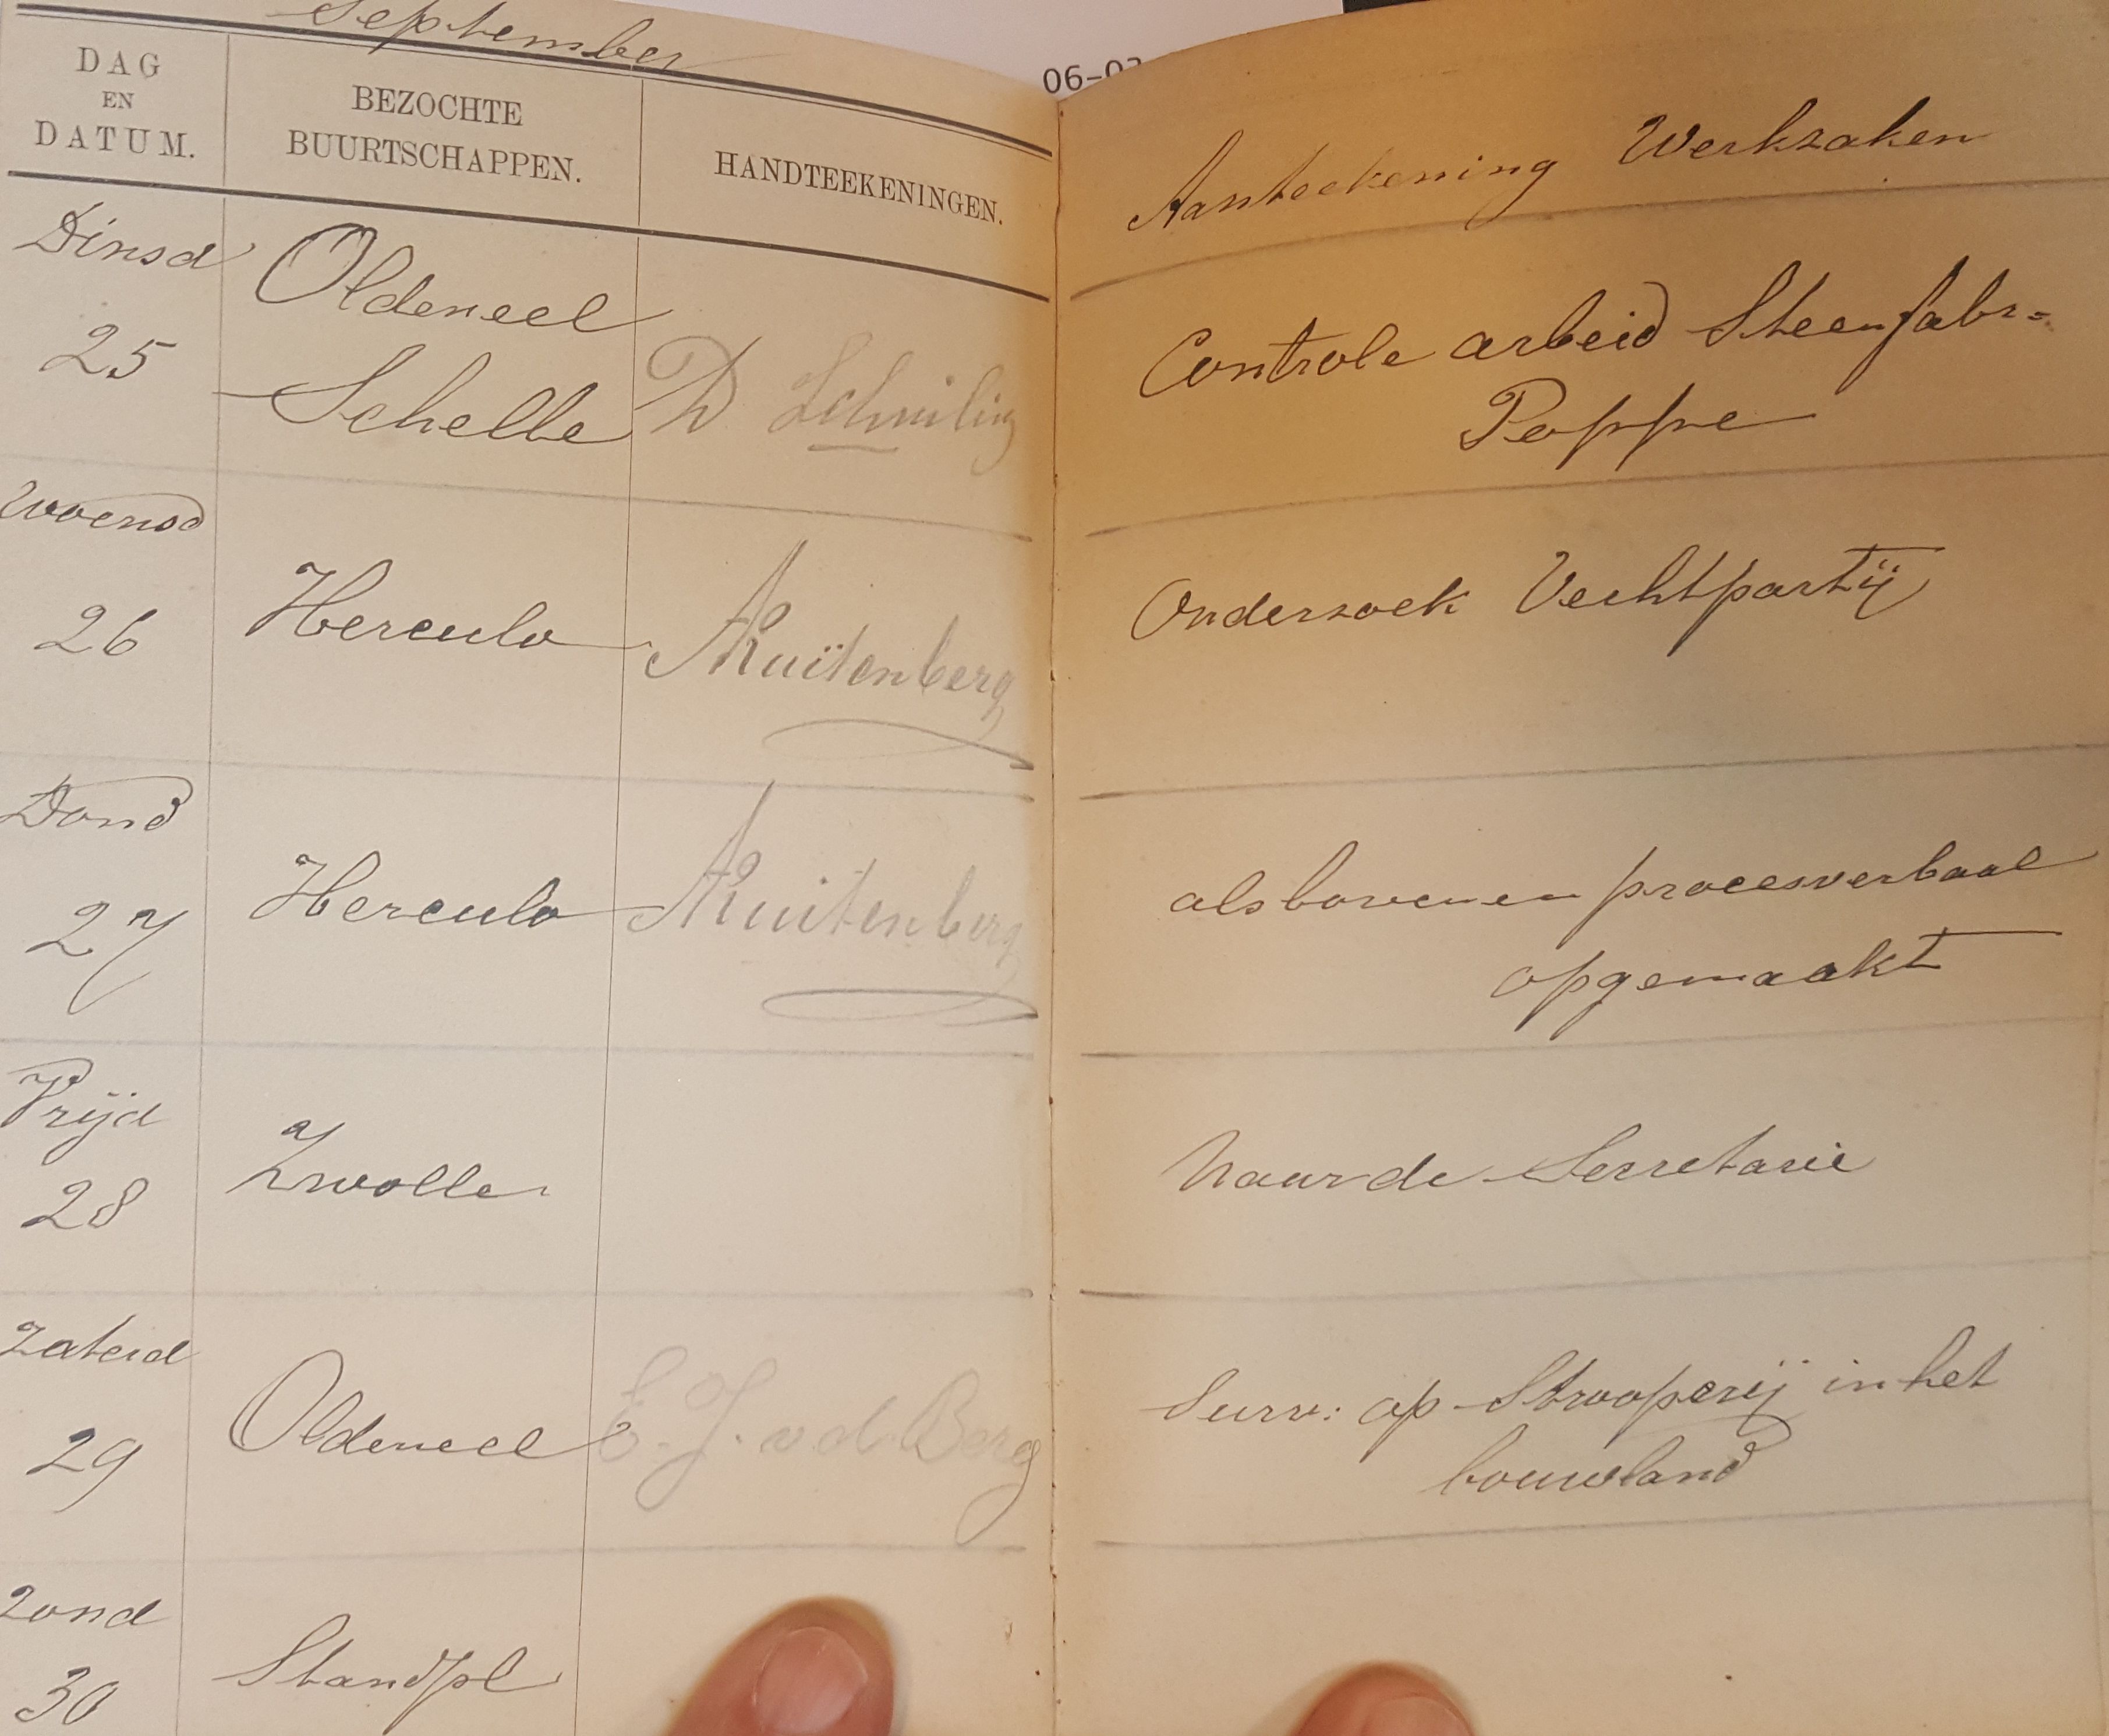 September
06-0
DAG
EN
DATUM.
BEZOCHTE
BUURTSCHAPPEN.
HANDTEEKENINGEN.
Aanteekening Werkzaken
Dinsd
25
Oldeneel
Schelle
D
Controle arbeid Steenfabr=
Poppe
Woensd
26
Herculo
Ruitenberg
Onderzoek Vechtpartij
Dond
27
Herculo
Ruitenberg
als boven en procesverbaal
opgemaakt
Vrijd
28
Zwolle
Naar de Secretarie
Zaterd
29
Oldeneel
E. J. v d Berg
Surv: op Strooperij in het
bouwland
Zond
30
Standpl